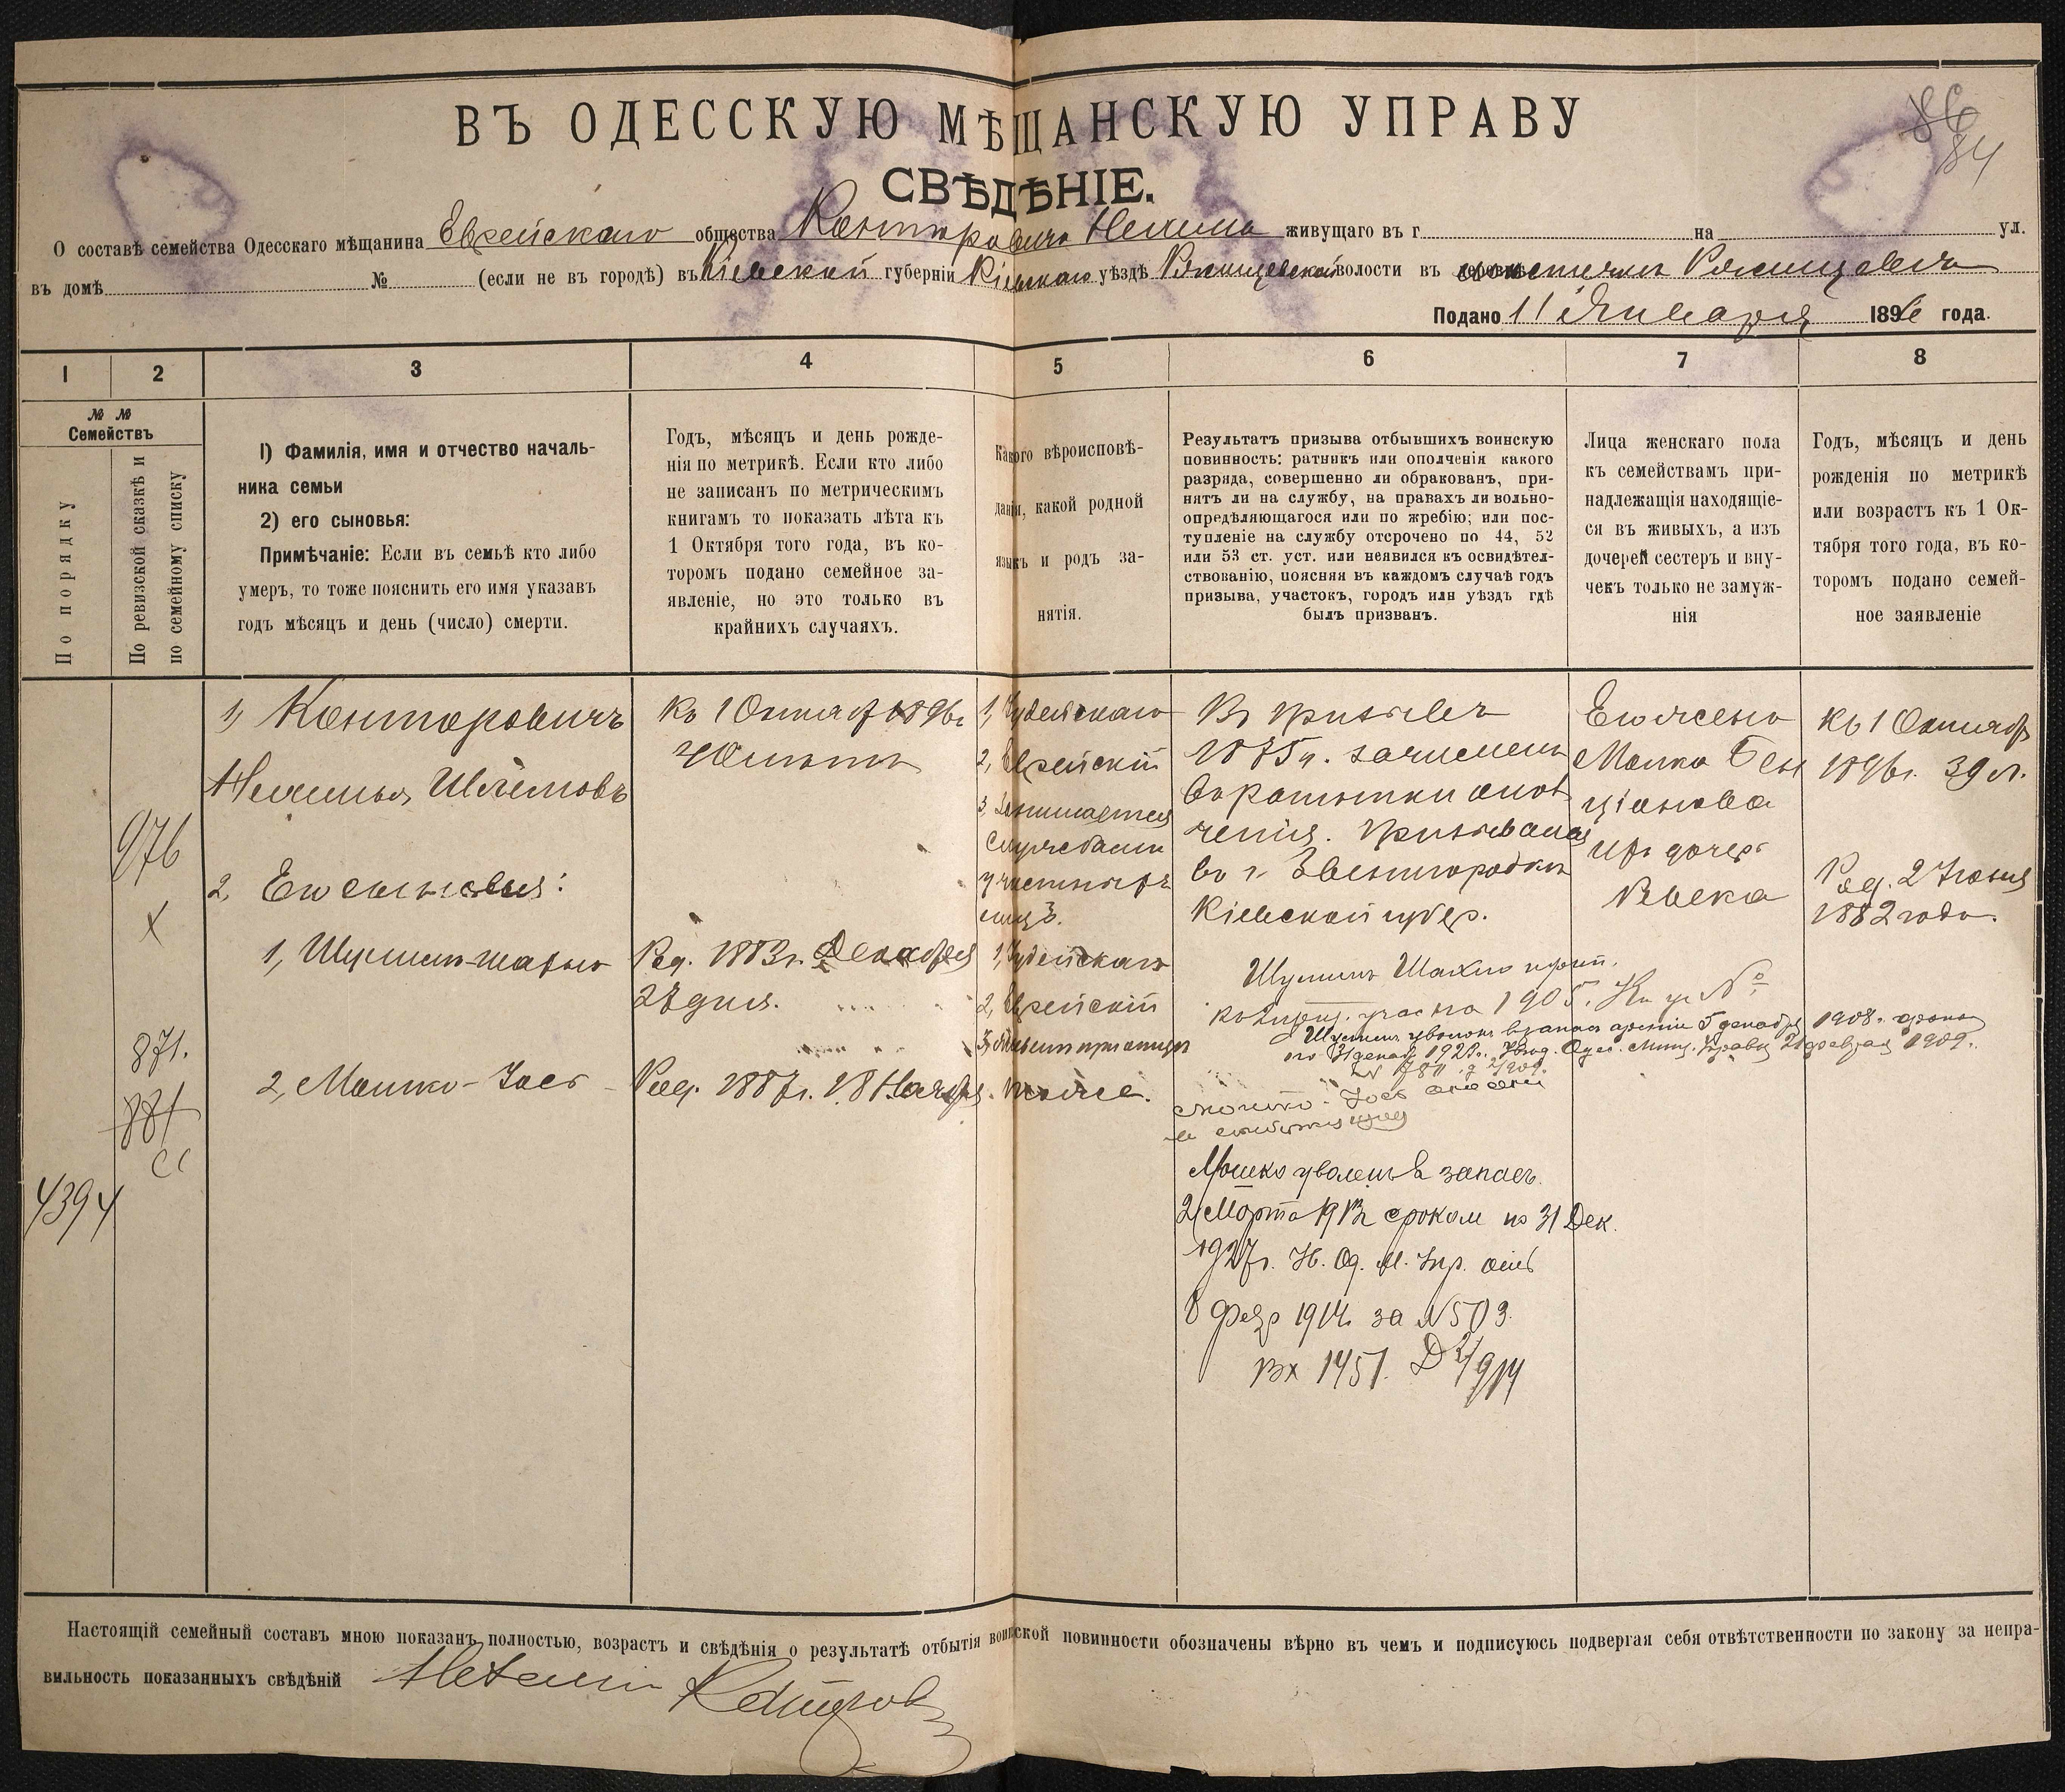 86
84
ВЪ ОДЕССКУЮ МѢЩАНСКУЮ УПРАВУ
СВѢДѢНІЕ.
О составѣ семейства Одесскаго мѣщанина Еврейскаго общества Канторовича живущаго въ г на ул.
въ домѣ № (если не въ городѣ) въ Кіевской губерніи Кіевскаго уѣздѣ волости въ
Подано 11 Января 1896 года.
1 2 3 4 5 6 7 8
№ №
Семействъ
По порядку
По ревизской сказкѣ и
по семейному списку
1) Фамилія, имя и отчество началь-
ника семьи
2) его сыновья:
Примѣчаніе: Если въ семьѣ кто либо
умеръ, то тоже пояснить его имя указавъ
годъ мѣсяцъ и день (число) смерти.
Годъ, мѣсяцъ и день рожде-
нія по метрикѣ. Если кто либо
не записанъ по метрическимъ
книгамъ то показать лѣта къ
1 Октября того года, въ ко-
торомъ подано семейное за-
явленіе, но это только въ
крайнихъ случаяхъ.
Какого вѣроисповѣ-
данія, какой родной
языкъ и родъ за-
нятія.
Результатъ призыва отбывшихъ воинскую
повинность: ратникъ или ополченія какого
разряда, совершенно ли обракованъ, при-
нятъ ли на службу, на правахъ ли вольно-
опредѣляющагося или по жребію; или пос-
тупленіе на службу отсрочено по 44, 52
или 53 ст. уст. или неявился къ освидѣтел-
ствованію, поясняя въ каждомъ случаѣ годъ
призыва, участокъ, городъ или уѣздъ гдѣ
былъ призванъ.
Лица женскаго пола
къ семействамъ при-
надлежащія находящіе-
ся въ живыхъ, а изъ
дочерей сестеръ и вну-
чекъ только не замуж-
нія
Годъ, мѣсяцъ и день
рожденія по метрикѣ
или возрастъ къ 1 Ок-
тября того года, въ ко-
торомъ подано семей-
ное заявленіе
976
х
871.
881
4394
1, Канторовичъ
Шлемовъ
2, Его сыновья:
1, Шулимъ-
2, Мошко-Іось
Къ 1 Октяб 1896г
Род. 1883г. Декабря
27 дня.
Род. 1887г. 18 Ноября.
1, Іудейскаго
2, Еврейскій
3, Занимается
службами
у частныхъ
лицъ.
1, Іудейскаго
2, Еврейскій
3,
тоже.
Въ призывъ
1875г. зачисленъ
въ ратники опол
ченія. Призывался
въ г. Звенигородкѣ
Кіевской губер.
Шулимъ
1905.
Шулимъ уволенъ въ запасъ арміи 5 декабря 1908г. срокомъ
по 31 декаб 192 г. Одес. Мѣщ. Управы 21 февраля 1909г.
Мошко-Іось
Мошко уволенъ в запасъ
2 Марта 1913г срокомъ по 31 Дек.
1927г. Од. М. Упр. отъ
8 Февр 1914 за №503.
Вх 1451.
Его жена
Малка Бен
ціонова
ихъ дочерь
Ривека
Къ 1 Октябр
1896г. 39 л.
Род. 2 Іюня
1882 года.
Настоящій семейный составъ мною показанъ полностью, возрастъ и свѣдѣнія о результатѣ отбытія воинской повинности обозначены вѣрно въ чемъ и подписуюсь подвергая себя отвѣтственности по закону за непра-
вильность показанныхъ свѣдѣній